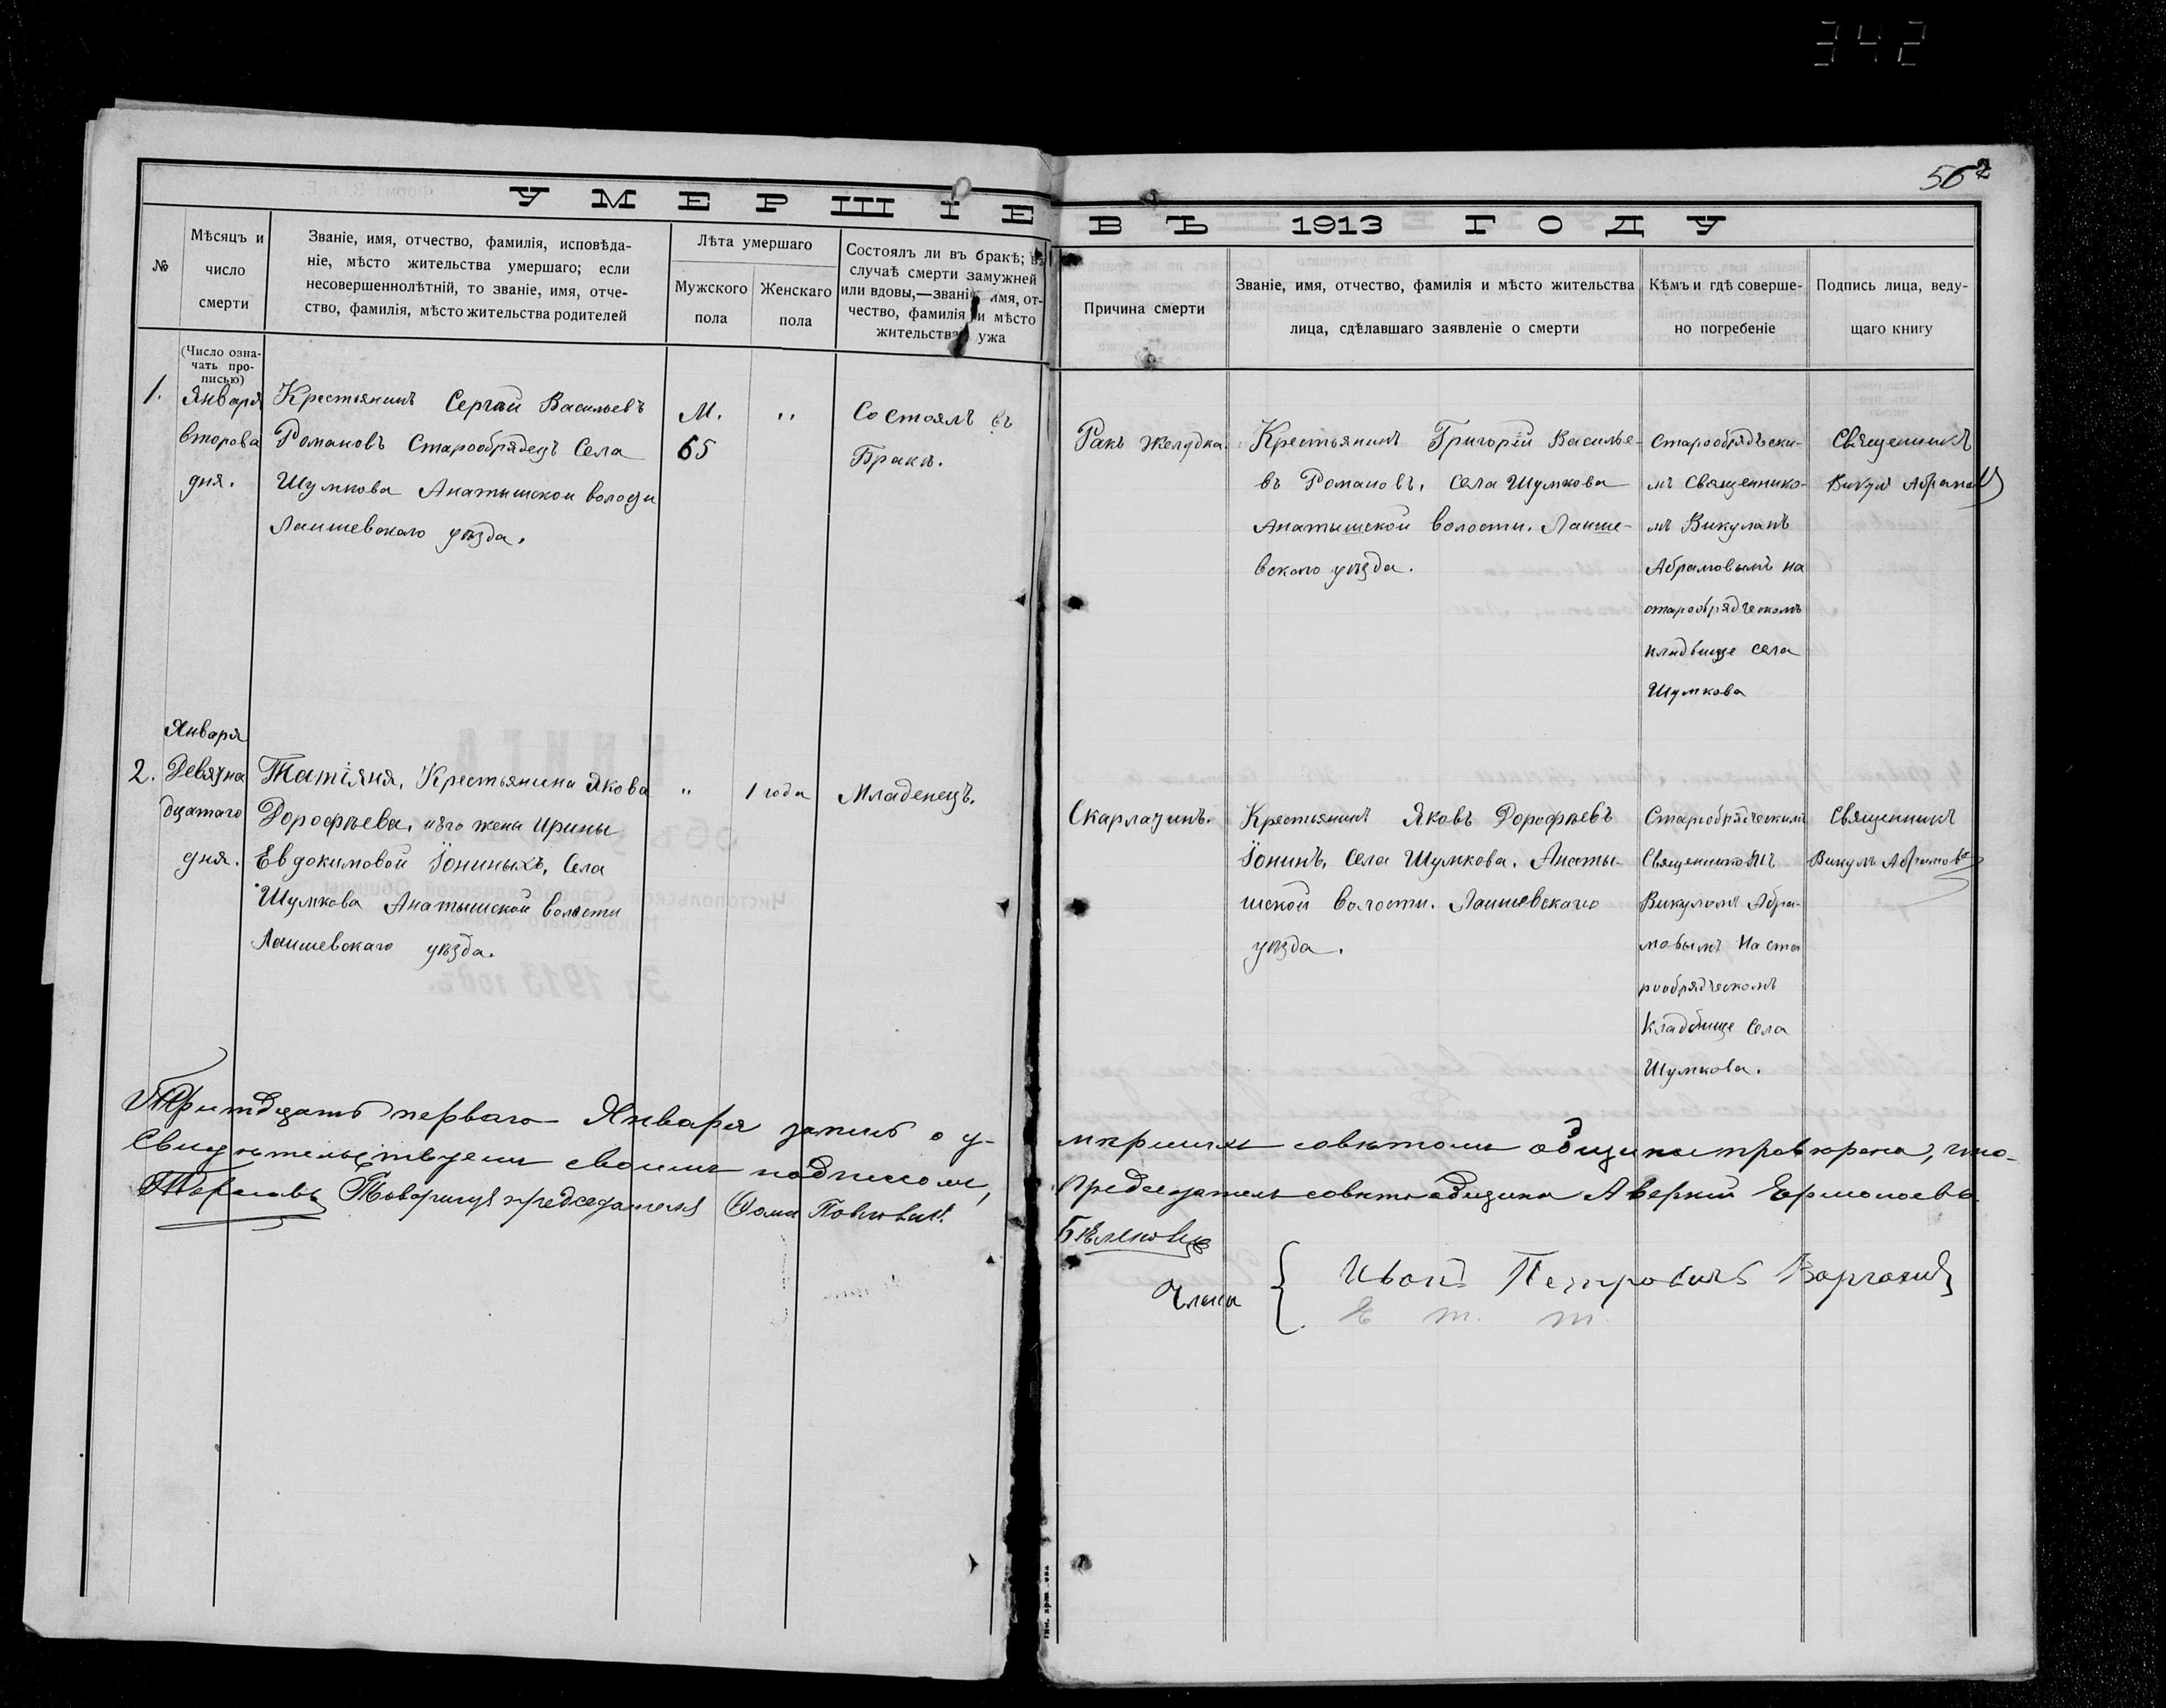 342
56 2
УМЕРШІЕ
ВЪ 1913 ГОДУ
№
Мѣсяцъ и
число
смерти
Званіе, имя, отчество, фамилія, исповѣда-
ніе, мѣсто жительства умершаго; если
несовершеннолѣтній, то званіе, имя, отче-
ство, фамилія, мѣсто жительства родителей
Лѣта умершаго
Мужского
пола
Женскаго
пола
Состоялъ ли въ бракѣ; въ
случаѣ смерти замужней
или вдовы,—званіе имя, от-
чество, фамилія и мѣсто
жительства ужа
Причина смерти
Званіе, имя, отчество, фамилія и мѣсто жительства
лица, сдѣлавшаго заявленіе о смерти
Кѣмъ и гдѣ соверше-
но погребеніе
Подпись лица, веду-
щаго книгу
(Число озна-
чать про-
писью)
1.
Января
второва
дня.
Крестьянинъ Сергѣй Васильевъ
Романовъ Старообрядецъ Села
Шумкова Анатышской волости
Лаишевскаго уѣзда.
М.
65
"
Состоялъ въ
Бракѣ.
Ракъ желудка.
Крестьянинъ Григорій Василье-
въ Романовъ, села Шумкова
Анатышской волости. Лаише-
вскаго уѣзда.
Старообрядчески-
мъ Священнико-
мъ Викуломъ
Абрамовымъ на
старообрядческомъ
кладбище села
Шумкова
Священникъ
Викулъ Абрамовъ
2.
Января
Девятна
дцатаго
дня.
Татіяна, Крестьянина Якова
Дорофѣева, и его жены Ирины
Евдокимовой Іониныхъ, Села
Шумкова Анатышской волости
Лаишевскаго уѣзда.
"
1 года
Младенецъ.
Скарлатинъ.
Крестьянинъ Яковъ Дорофѣевъ
Іонинъ, села Шумкова. Анаты-
шской волости. Лаишевскаго
уѣзда.
Старообрядческимъ
Священникомъ
Викуломъ Абра-
мовымъ на ста
рообрядческомъ
Кладбище Села
Шумкова.
Священникъ
Викулъ Абрамовъ
Тритдцать перваго Января запись о у-
мершихъ совѣтомъ общины проверена, что
Свидѣтельствуемъ своимъ подписомъ,
Председатель совѣта общины Аверкій Ермолаевъ
Товарищъ председателя Фома
Члены
Иванъ Петровичъ